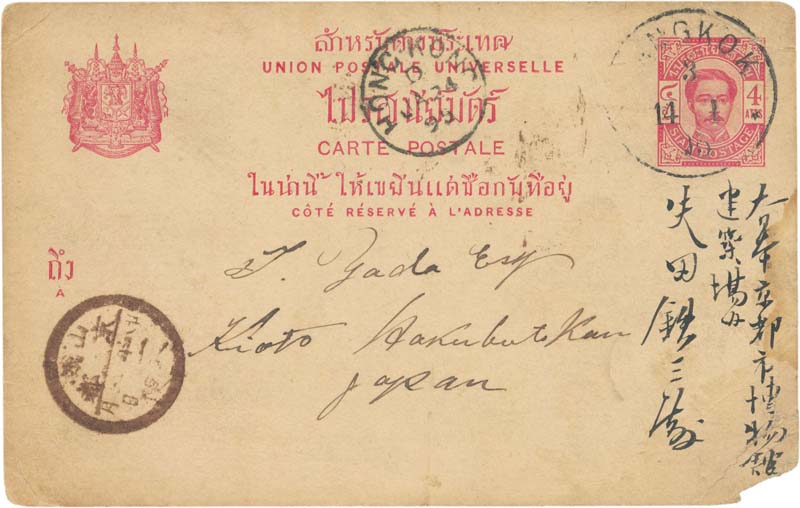 สำหรับต่างประเทศ
UNION POSTALE UNIVERSELLE
ไปรสนียบัตร์
CARTE POSTALE
ในน่านี้ ให้เขยีนแต่ชื่อกับที่อยู่
CÔTÉ RÉSERVÉ À L'ADRESSE
ถึง
A
T. Yada Esq
Kioto Hakubutskan
Japan
大日本京都市博物館
建築場内
矢田鉄三郎
HONG KONG
JA 24
BANGKOK
14 1
๔
4
SIAM POSTAGE